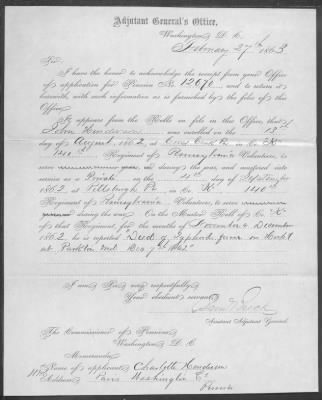 Adjutant General's Office,
Washington, D. C.
February 27th, 1863
Sir:
I have the honor to acknowledge the receipt from your Office
of application for Pension No. 12670, and to return it
herewith, with such information as is furnished by the files of this
Office.
It appears from the Rolls on file in this Office, that
John Henderson was enrolled on the
day of August, 1862, at Pa., in Co. "K"
140th Regiment of Pennsylvania Volunteers, to serve
during the war, and mustered into
service as a Private on the day of September
1862, at Pittsburgh Pa, in Co. "K" 140th
Regiment of Pennsylvania Volunteers, to serve
during the war. On the Muster Roll of Co. "K"
of that Regiment, for the months of November & December
1862, he is reported "Died of Typhoid fever in Hosp't
at Parkton Md. Dec. 7th 1862"
I am, Sir, very respectfully,
Your obedient servant,
Assistant Adjutant General.
The Commissioner of Pensions,
Washington, D. C.
Memoranda:
Name of applicant, Charlotte Henderson
Address, Paris Washington C
Penna